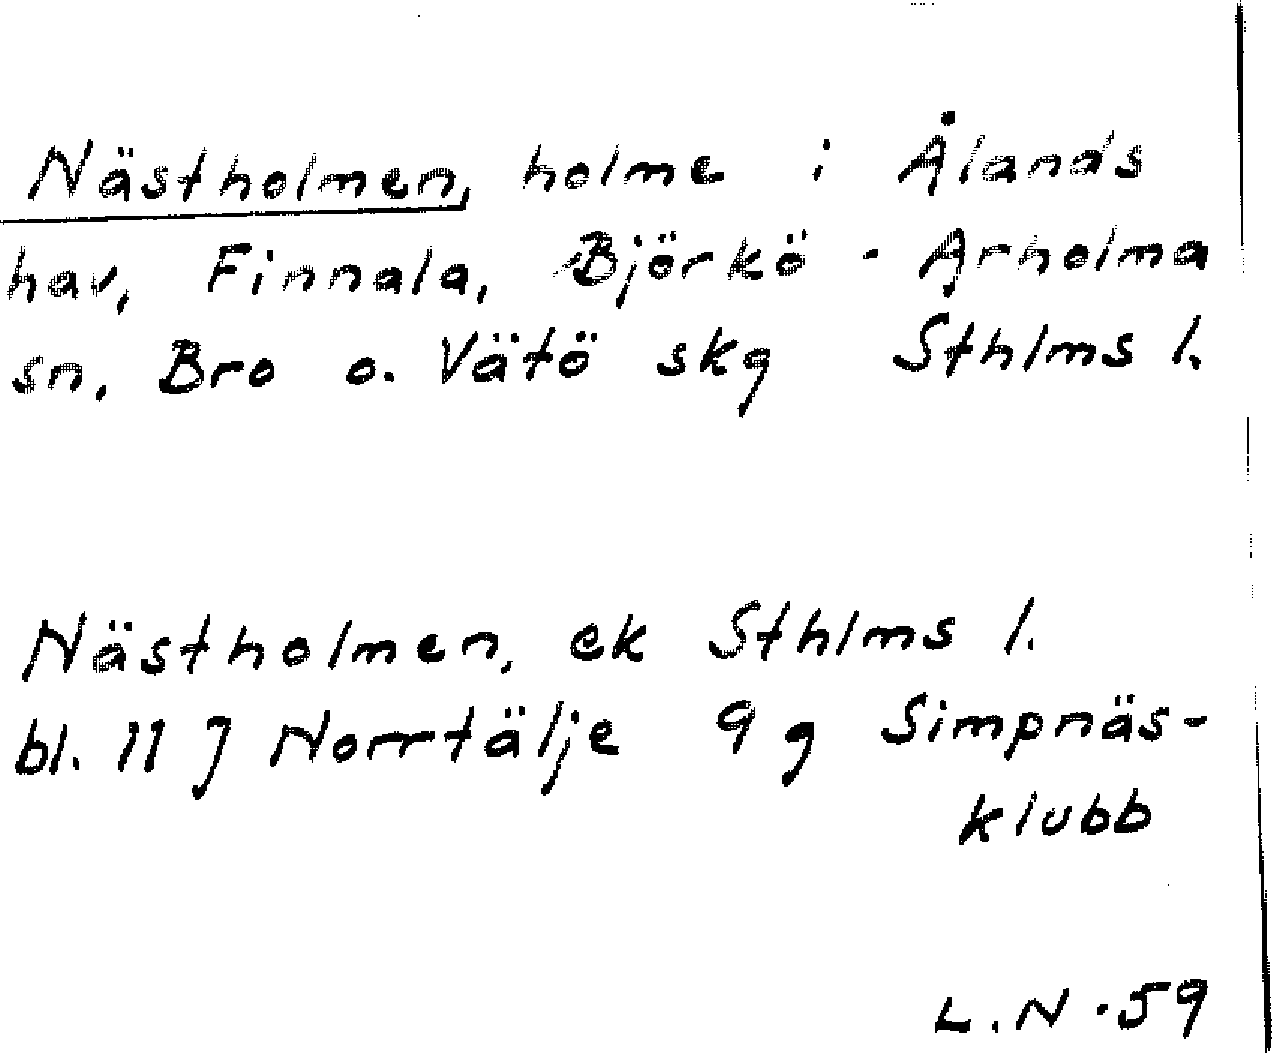 Nästholmen, holme i Ålands
hav, Finnala, Björkö - Arholma
sn, Bro o. Vätö skg Sthlms l.
Nästholmen, ek Sthlms l.
bl. 11 J Norrtälje 9 g Simpnäs-
klubb
L.N -59